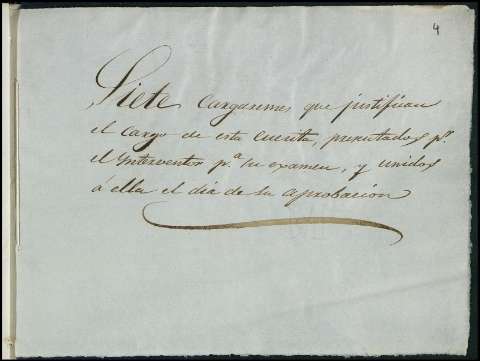 4
Siete Cargaremes que justifican
el Cargo de esta Cuenta, presentados pr.
el Interventor pa. su examen, y unidos
á ella el dia de su aprobacion